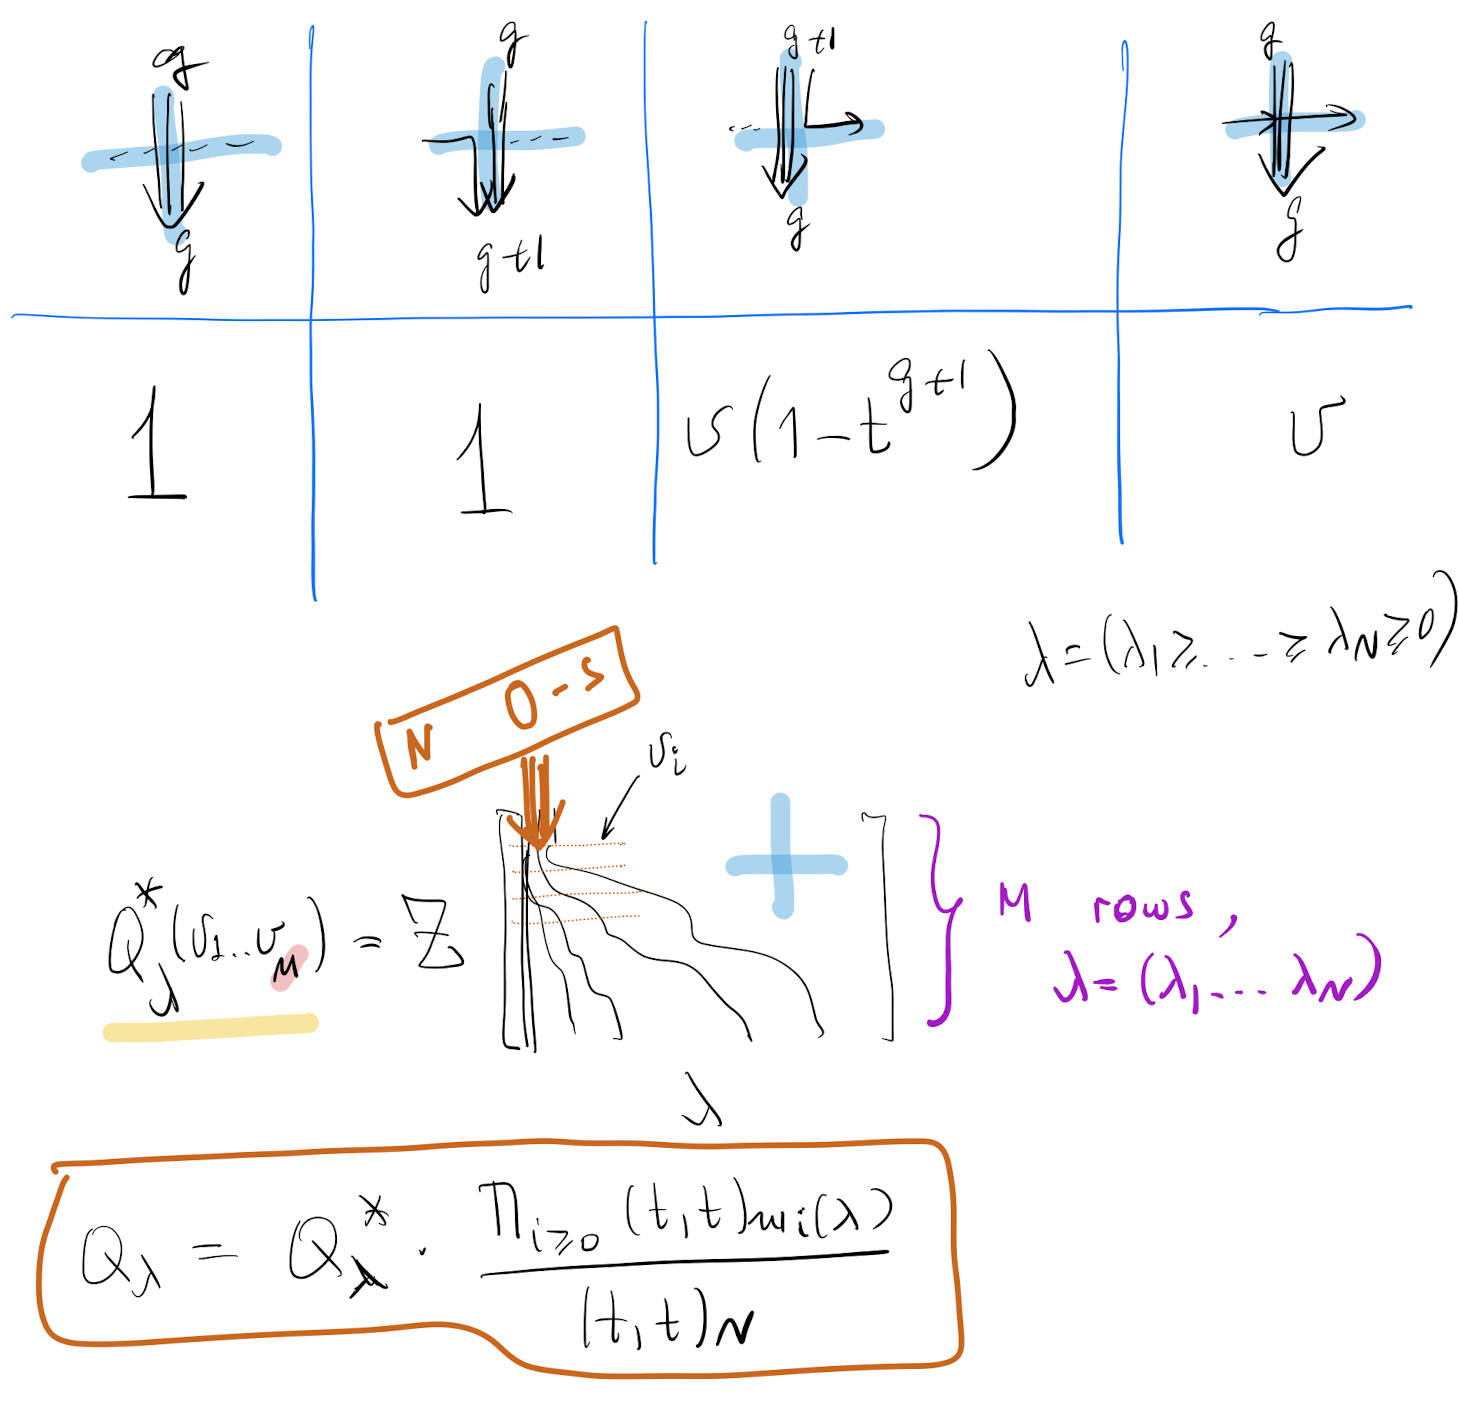 g g g+1 g
g g+1 g g
1 1 v(1-t^{g+1}) v
λ=(λ₁≥...≥λ_N≥0)
N 0-s
v_i
Q*_λ(v₁..v_M) = Z
M rows,
λ=(λ₁...λ_N)
λ
Q_λ = Q*_λ · ∏_{i≥0}(t,t)_{m_i(λ)} / (t,t)_N